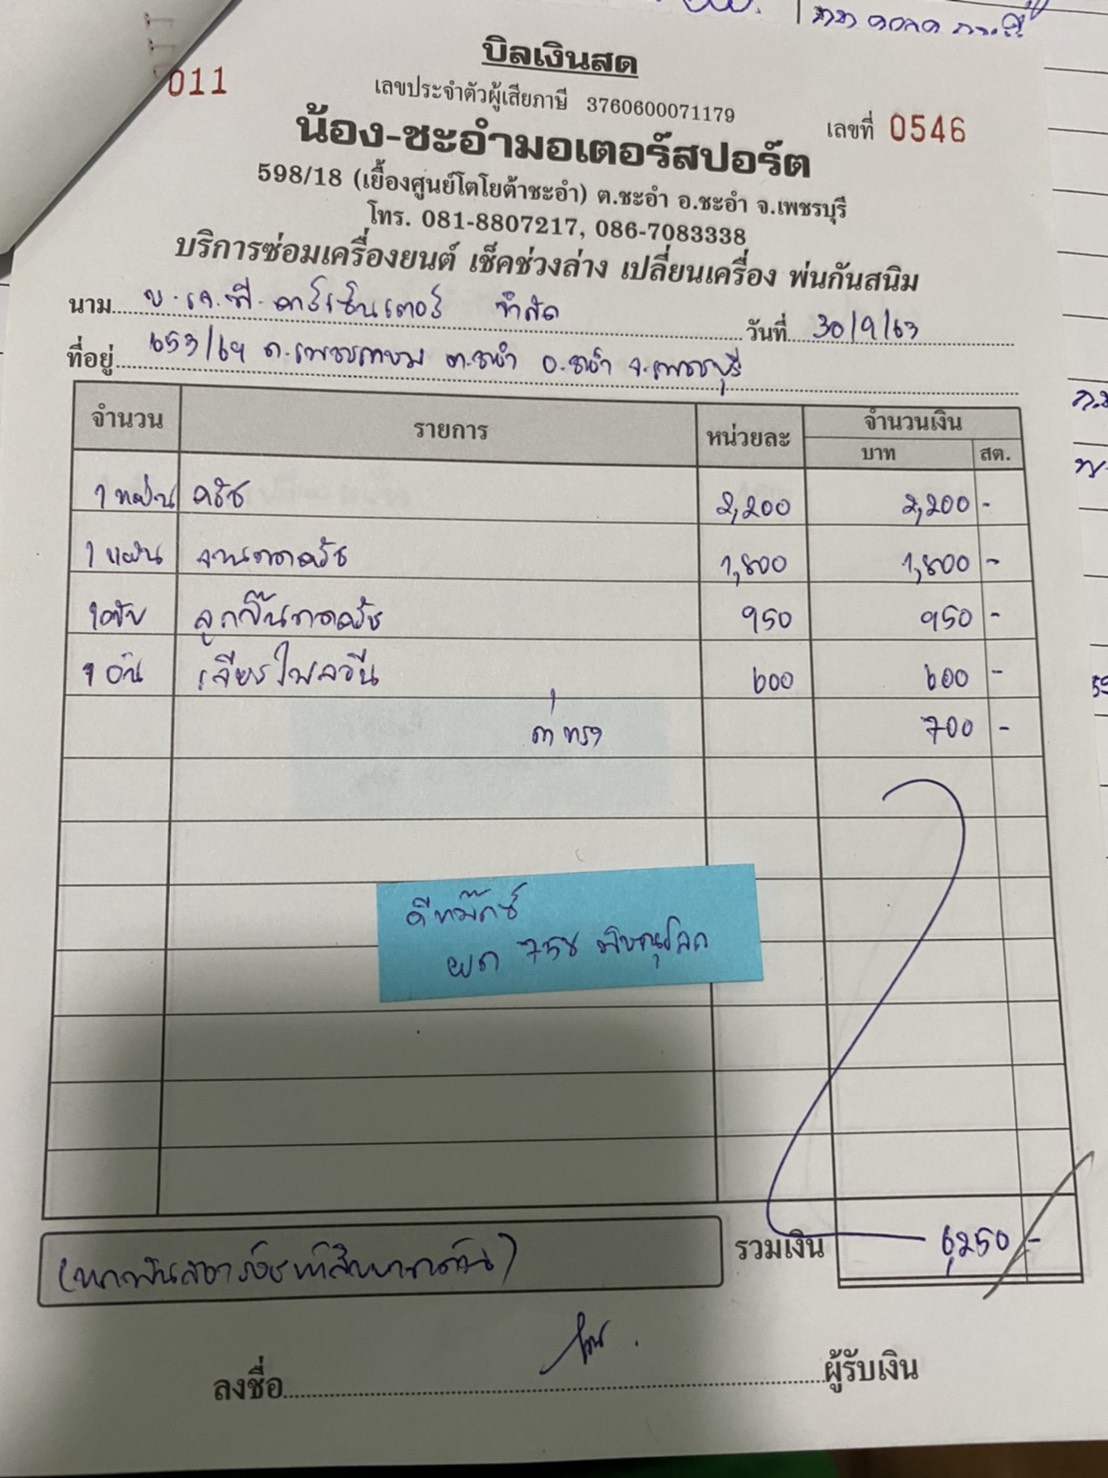 บิลเงินสด
011
เลขประจำตัวผู้เสียภาษี 3760600071179
เลขที่ 0546
น้อง-ชะอำมอเตอร์สปอร์ต
598/18 (เยื้องศูนย์โตโยต้าชะอำ) ต.ชะอำ อ.ชะอำ จ.เพชรบุรี
โทร. 081-8807217, 086-7083338
บริการซ่อมเครื่องยนต์ เช็คช่วงล่าง เปลี่ยนเครื่อง พ่นกันสนิม
นาม บ.เจ.พี.คาร์เซ็นเตอร์ จำกัด วันที่ 30/9/63
ที่อยู่ 653/64 ถ.เพชรเกษม ต.ชะอำ อ.ชะอำ จ.เพชรบุรี
จำนวน รายการ หน่วยละ จำนวนเงิน
บาท สต.
1 แผ่น ครัช 2,200 2,200 -
1 แผ่น จานกดครัช 1,800 1,800 -
ลูกปืนกดครัช 950 950 -
1 อัน เฟลวีน 600 600 -
ค่าแรง 700 -
ดีแม็กซ์
ผด 758 พิษณุโลก
รวมเงิน 6,250 -
(หกพันสองร้อยห้าสิบบาทถ้วน)
ลงชื่อ ผู้รับเงิน